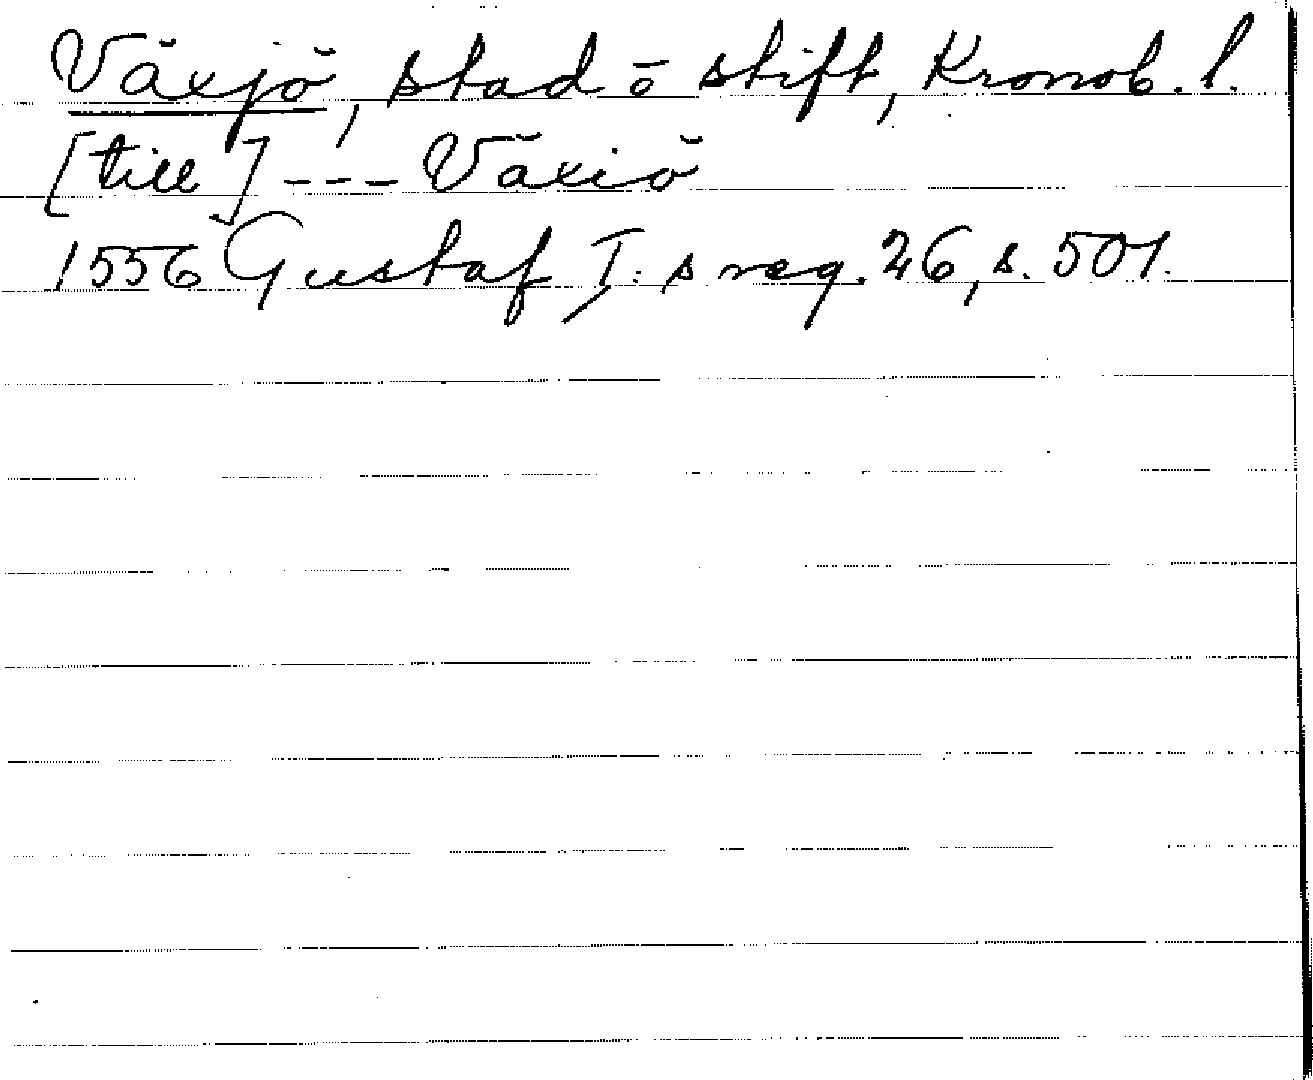 Växjö, stad ö stift, Kronob. l.
[till] --- Växiö
1556 Gustaf I:s reg. 26, s. 501.